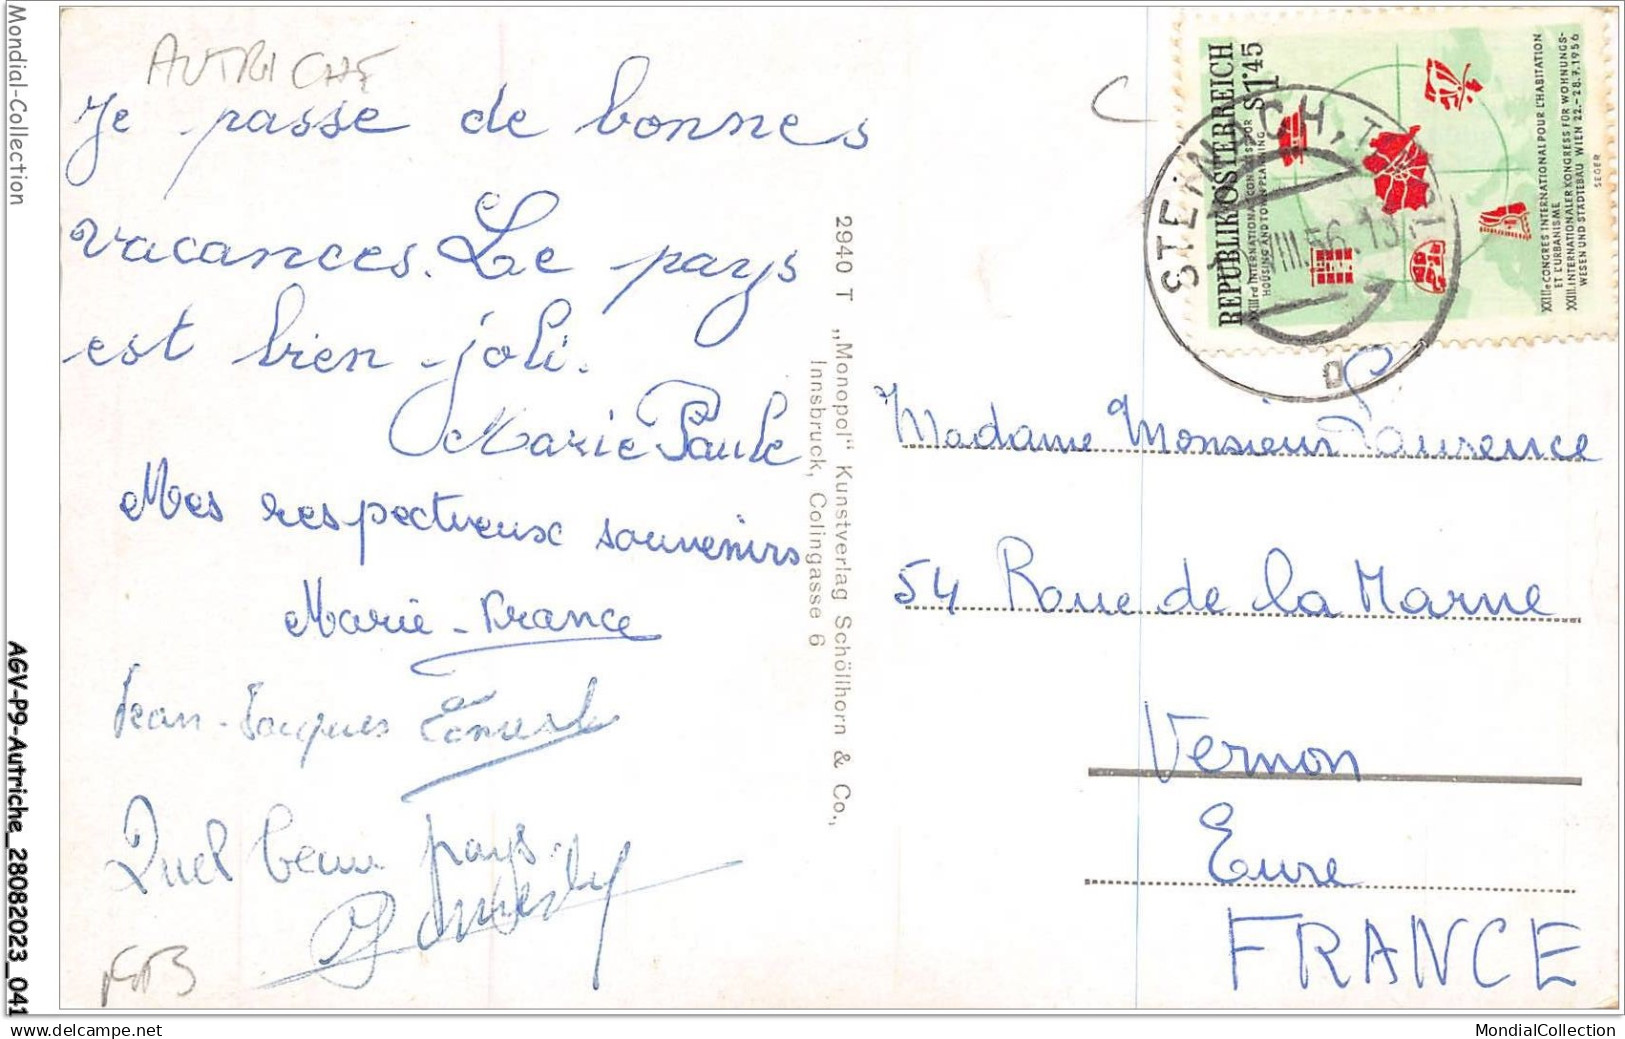 Mondial-Collection
AGV-P9-Autriche_28082023_041
AUTRICHE
Je passe de bonnes
vacances. Le pays
est bien joli.
Marie Paule
Mes respectueux souvenirs
Marie-France
Jean-Jacques
Quel beau pays.
2940 T „Monopol“ Kunstverlag Schöllhorn & Co.,
Innsbruck, Colingasse 6
REPUBLIK ÖSTERREICH
S 1.45
XXIIIrd INTERNATIONAL CONGRESS FOR
HOUSING AND TOWN PLANNING
XXIIIe CONGRES INTERNATIONAL POUR L'HABITATION
ET L'URBANISME
XXIII. INTERNATIONALER KONGRESS FÜR WOHNUNGS-
WESEN UND STÄDTEBAU WIEN 22.-28.7.1956
SEGER
VIII.56.13
a
Madame Monsieur Laurence
54 Roue de la Marne
Vernon
Eure
FRANCE
MondialCollection